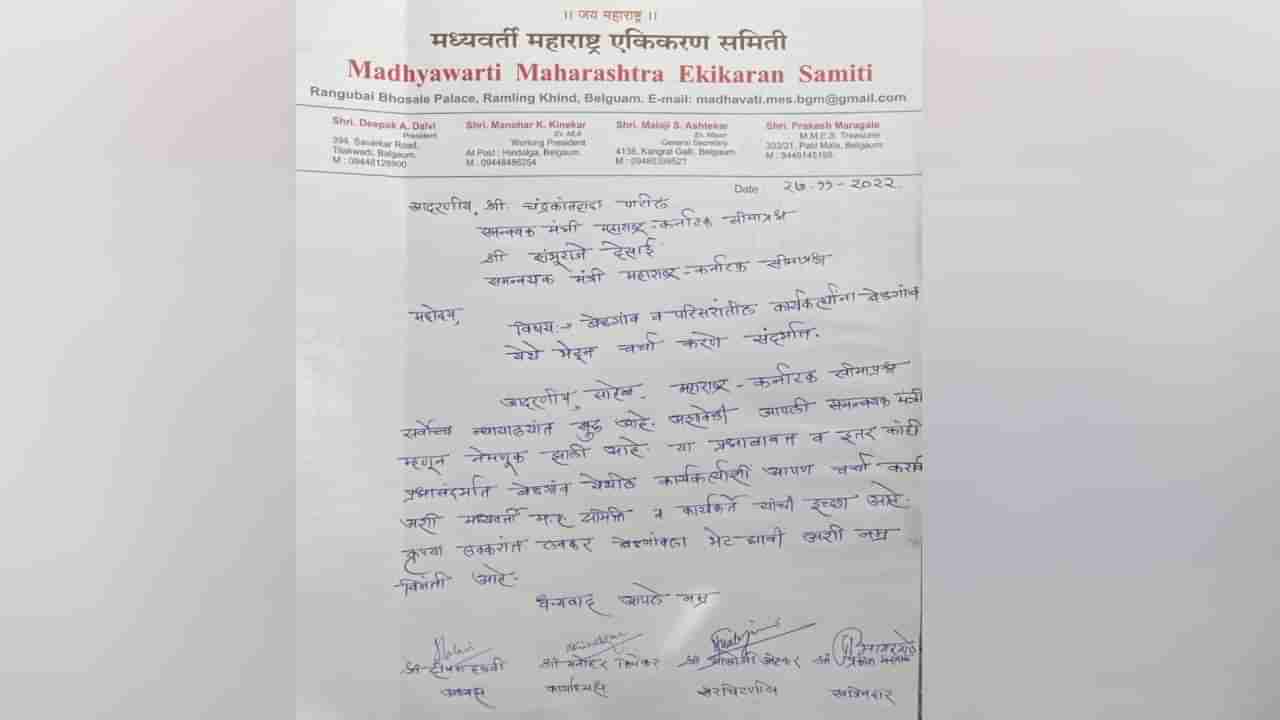 ।। जय महाराष्ट्र ।।
मध्यवर्ती महाराष्ट्र एकिकरण समिती
Madhyawarti Maharashtra Ekikaran Samiti
Rangubai Bhosale Palace, Ramling Khind, Belguam. E-mail: madhavati.mes.bgm@gmail.com
Shri. Deepak A. Dalvi
President
394, Savarkar Road,
Tilakwadi, Belgaum.
M : 09448128900
Shri. Manohar K. Kinekar
Ex. MLA
Working President
At Post : Hindalga, Belgaum.
M : 09448486254
Shri. Maloji S. Ashtekar
Ex. Mayor
General Secretary
4138, Kangrai Galli, Belgaum
M : 09480398521
Shri. Prakash Maragale
M.M.E.S. Treasurer
332/21, Patil Mala, Belgaum
M : 9449145198
Date २७-११-२०२२.
आदरणीय, श्री. चंद्रकांतदादा पाटील
समन्वयक मंत्री महाराष्ट्र-कर्नाटक सीमाप्रश्न
श्री शंभूराजे देसाई
समन्वयक मंत्री महाराष्ट्र-कर्नाटक सीमाप्रश्न
महोदय,
विषय:- बेळगांव व परिसरांतील कार्यकर्त्यांना बेळगांव
येथे भेटून चर्चा करणे संदर्भात.
आदरणीय साहेब, महाराष्ट्र-कर्नाटक सीमाप्रश्न
सर्वोच्च न्यायालयांत सुरू आहे. अशावेळी आपली समन्वयक मंत्री
म्हणून नेमणूक झाली आहे. या प्रश्नाबाबत व इतर कांही
प्रश्नासंदर्भात बेळगांव येथील कार्यकर्त्यांशी आपण चर्चा करावी
अशी मध्यवर्ती म.ए. समिती व कार्यकर्ते यांची इच्छा आहे.
कृपया लवकरांत लवकर बेळगांवला भेट द्यावी अशी नम्र
विनंती आहे.
धन्यवाद आपले नम्र
श्री दीपक दळवी
अध्यक्ष
श्री मनोहर किणेकर
कार्याध्यक्ष
श्री मालोजी अष्टेकर
सरचिटणीस
श्री प्रकाश मरगाळे
खजिनदार